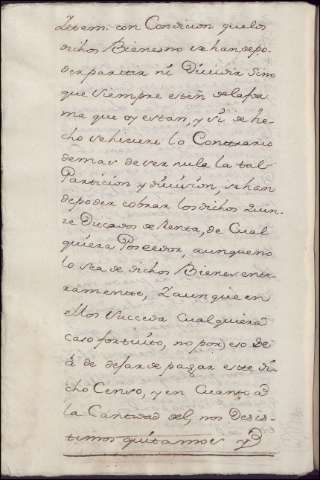 Ytem con Condicion que los
dichos Bienes no se han de po
der partir ni Dividir Sino
que siempre esten de la for
ma que oy estan, y si de he
cho se hiciere lo Contrario
demas de ser nula la tal
Particion y division, se han
de poder cobrar los dichos Quin
ze Ducados de Renta, de Cual
quiera Poseedor, aunque no
lo sea de dichos Bienes ente
ramente, Y aunque en
ellos succeda Cualquiera
caso fortuito, no por eso se
à de dejar de pagar este di
cho Censo, y en Cuanto à
la Cantidad del, nos Desis
timos quitamos y